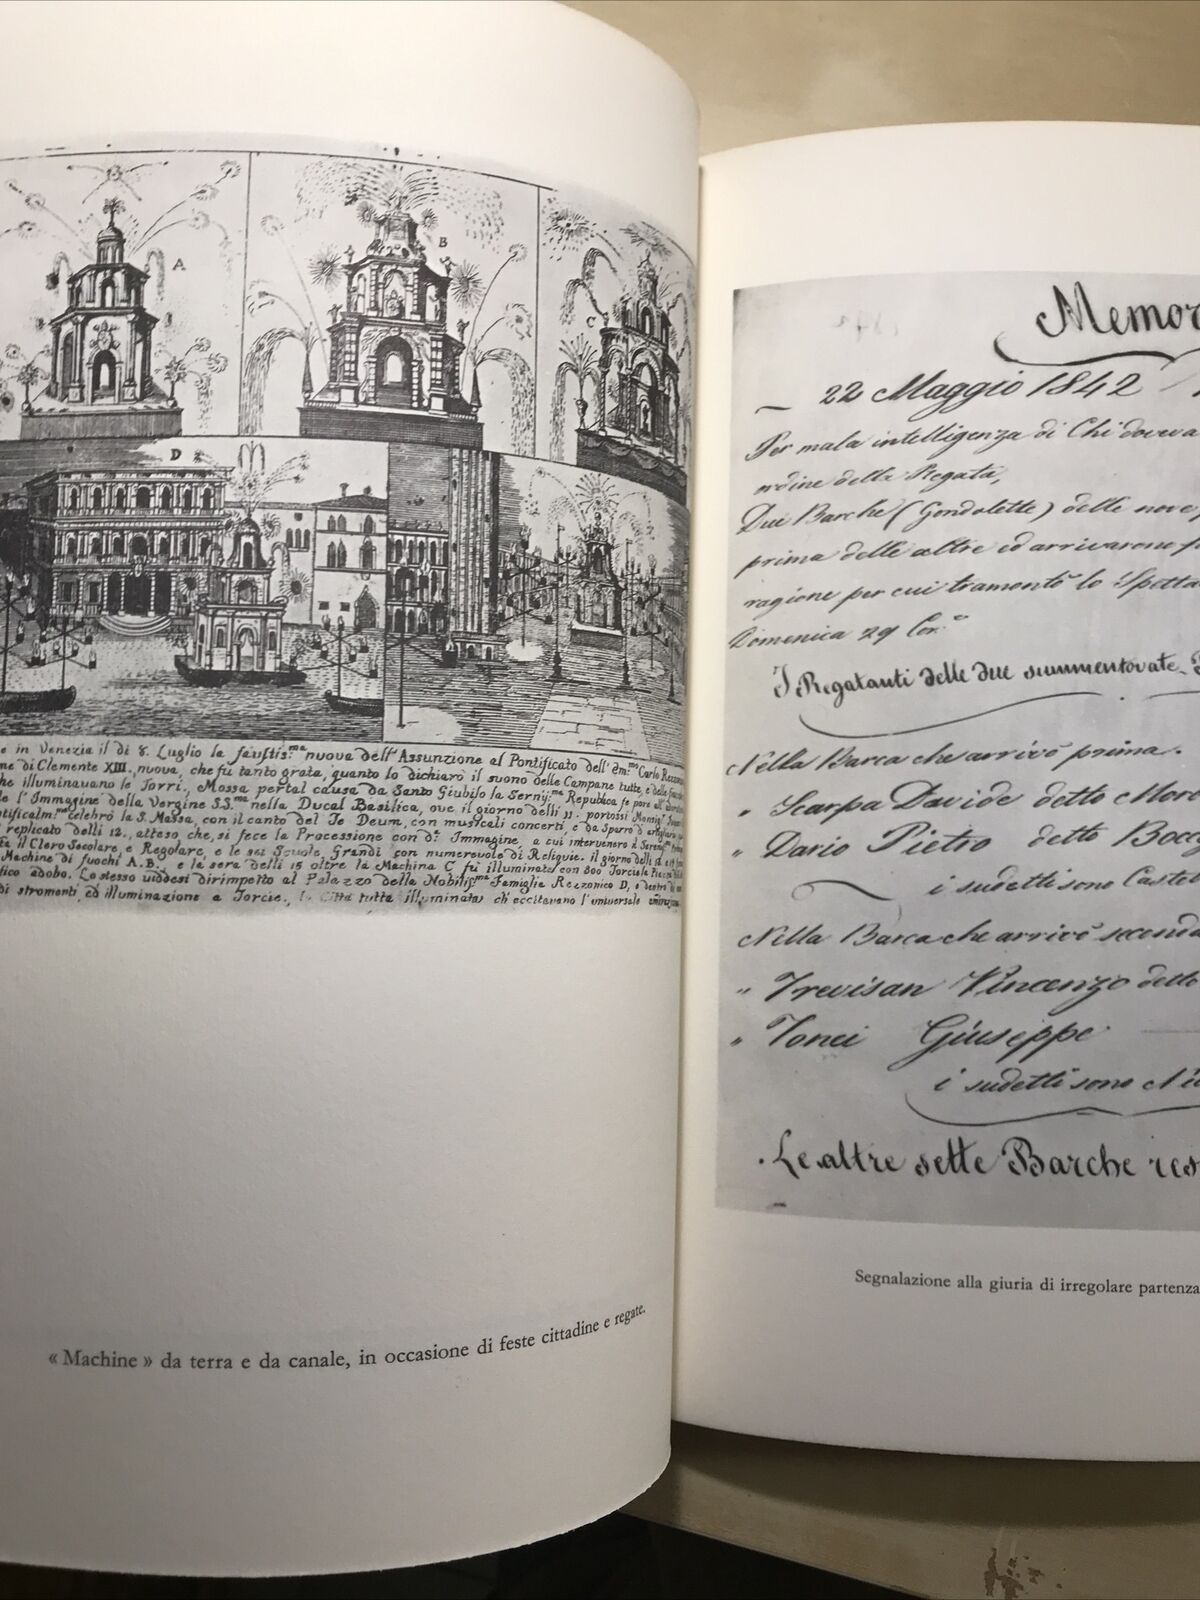 A
B
C
D
e in Venezia il dì 8. Luglio la faustis.ma nuova dell'Assunzione al Pontificato dell'Em.mo Carlo
me di Clemente XIII., nuova, che fù tanto grata, quanto lo dichiarò il suono delle Campane tutte, e delle
he illuminavano le Torri, Mossa per tal causa da Santo Giubilo la Seren.ma Republica fe pore all'
le l'Immagine della Vergine SS.ma nella Ducal Basilica, ove il giorno delli 11. portossi Monsig.r
ntificalm.te celebrò la S. Messa, con il canto del Te Deum, con musicali concerti, e da Sparro d'
replicato delli 12., atteso che, si fece la Processione con d.a Immagine, a cui intervenero il Seren.mo
il Clero Secolare e Regolare, e le sei Scuole Grandi con numerevole di Reliquie. il giorno delli
Machine di fuochi A.B. e la sera delli 15 oltre la Machina C fù illuminata con 800 Torcie la Piazza
fico adobo. Lo stesso viddesi dirimpetto al Palazzo della Nobilis.ma Famiglia Rezzonico D, e dentro
di stromenti, ed illuminazione a Torcie, la Città tutta illuminata ch'eccitavano l'universale
« Machine » da terra e da canale, in occasione di feste cittadine e regate.
Memor
22 Maggio 1842
Per mala intelligenza di Chi doveva
ordine della Regata,
Due Barche (Gondolette) delle nove,
prima delle altre ed arrivarono
ragione per cui tramontò lo Spetta
Domenica 29 Cor.e
I Regatanti delle due summentovate
Nella Barca che arrivò prima.
" Scarpa Davide detto More
" Dario Pietro detto Bocc
i sudetti sono Castel
Nella Barca che arrivò seconda
" Trevisan Vincenzo detto
" Tonei Giuseppe
i sudetti sono Nic
Le altre sette Barche res
Segnalazione alla giuria di irregolare partenza